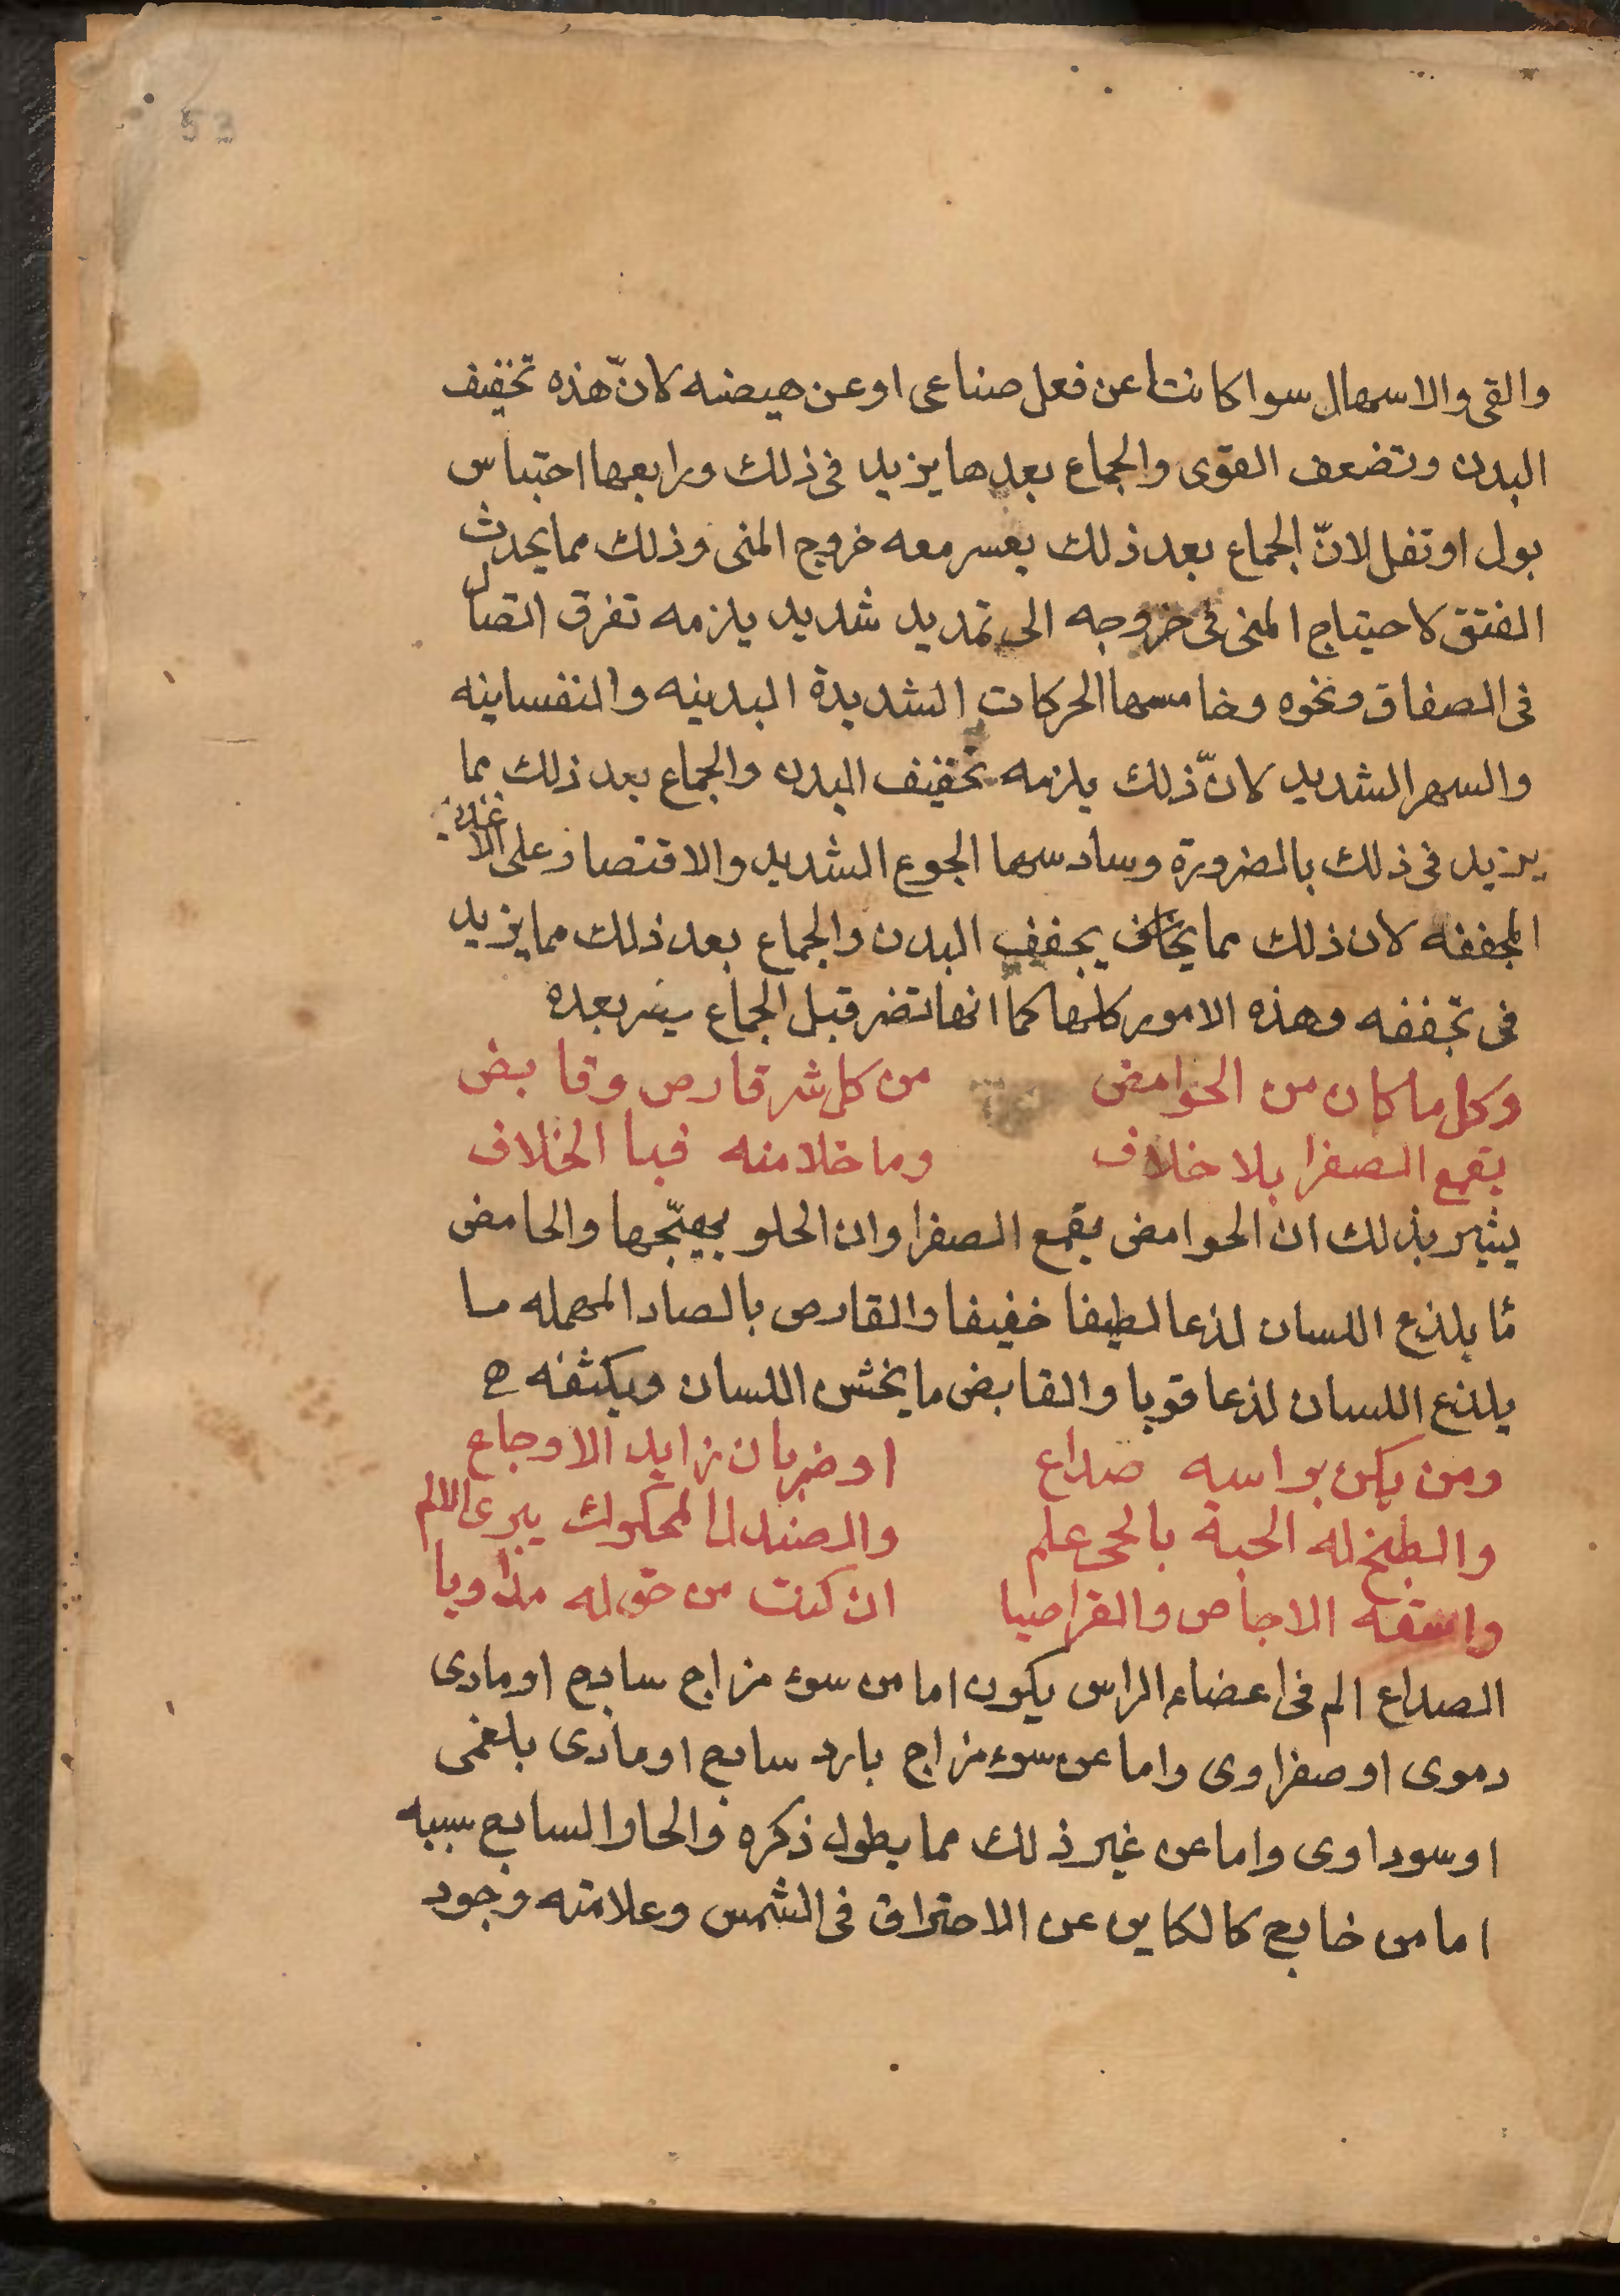 53
والقى والاسهال سوا كانتا عن فعل صناعى او عن هيضه لانّ هذه تخفيف
البدن وتضعف القوى والجماع بعدها يزيد فى ذلك ورابعها احتباس
بول او تفل لانّ الجماع بعد ذلك يعسر معه خروج المنى وذلك مما يحدث
الفتق لاحتياج المنى فى خروجه الى تمديد شديد يلزمه تفرق اتصال
فى الصفاق ونحوه وخامسها الحركات الشديدة البدنيه والنفسانيه
والسهر الشديد لانّ ذلك يلزمه تخفيف البدن والجماع بعد ذلك مما
يزيد فى ذلك بالضرورة وسادسها الجوع الشديد والاقتصار على الاغذيه
المجففه لان ذلك مما يجفف البدن والجماع بعد ذلك مما يزيد
فى تجففه وهذه الامور كلها كما انها تضر قبل الجماع بعده
وكل ما كان من الحوامض من كل شر قارص وقابض
يقمع الصفرا بلا خلاف وما خلا منه فبا الخلاف
يشير بذلك ان الحوامض يقمع الصفرا وان الحلو يهيّجها والحامض
ما يلذع اللسان لذعا لطيفا خفيفا والقارص بالصاد المهمله ما
يلذع اللسان لذعا قويا والقابض ما يخشن اللسان ويكثفه ه
ومن يكن براسه صداع او ضربان زايد الاوجاع
والطخ له الجبة بالحى علم والصندل المحكوك يبرى الالم
واسقه الاجاص والقراصيا ان كنت من حق له مداويا
الصداع الم فى اعضاء الراس يكون اما من سوء مزاج ساذج او مادى
دموى او صفراوى واما عن سوء مزاج بارد ساذج او مادى بلغمى
او سوداوى واما عن غير ذلك مما يطول ذكره والحار الساذج سببه
اما من خارج كالكاين عن الاحتراق فى الشمس وعلامته وجود